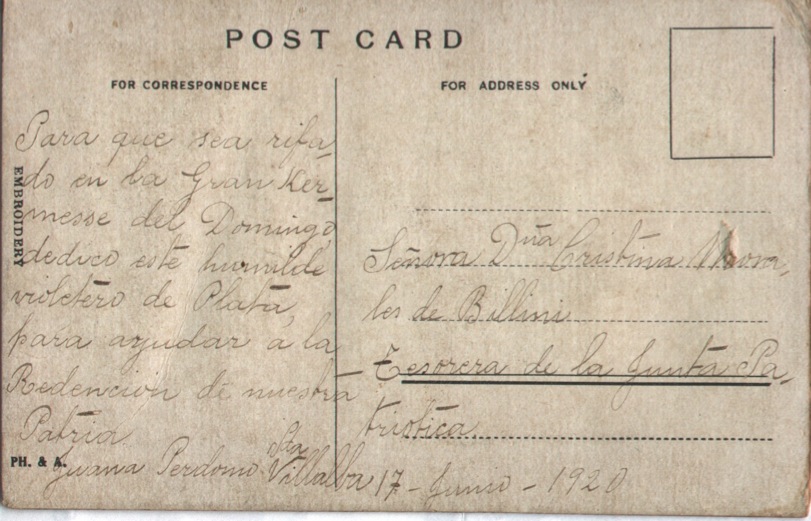 POST CARD
FOR CORRESPONDENCE
FOR ADDRESS ONLY
EMBROIDERY
Para que sea rifa-
do en la Gran Ker-
messe del Domingo
dedico este humilde
violetero de Plata,
para ayudar á la
Redencion de nuestra
Patria
Juana Perdomo
Villalba 17 - Junio - 1920
PH. & A.
Señora Dña Cristina Mora-
les de Billini
Tesorera de la Junta Pa-
triotica.